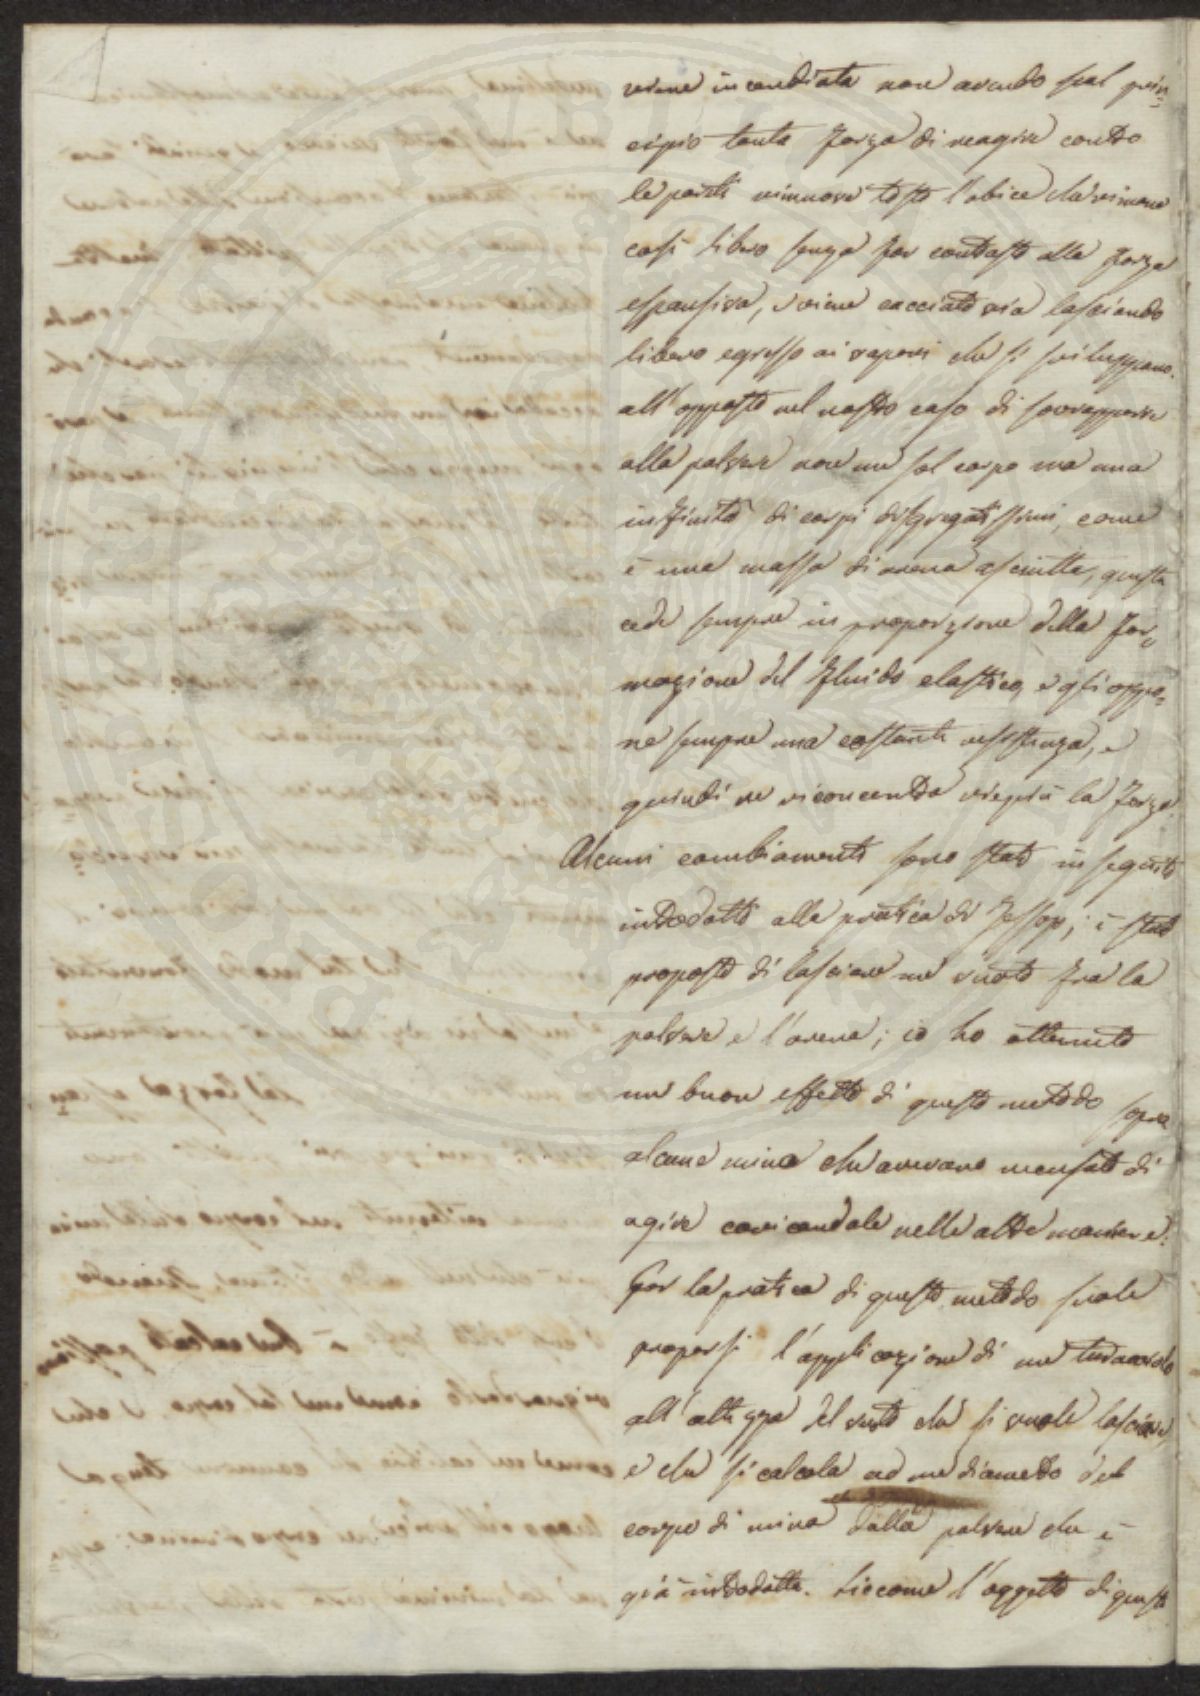 viene incendiata non avendo sul prin=
cipio tanta forza di reagire contro
le pareti rimuove tosto l'obice che rimane
così libero senza far contrasto alla forza
espansiva, e viene cacciato via lasciando
libero egresso ai vapori che si sviluppano.
all'opposto nel nostro caso di sovrapporre
alla polvere non un sol corpo ma una
infinità di corpi disgregatissimi, come
è una massa di arena asciutta, questa
cede sempre in proporzione della for=
mazione del fluido elastico, e gli oppo=
ne sempre una costante resistenza, e
quindi ne riconcentra vieppiù la forza.
Alcuni cambiamenti sono stati in seguito
introdotti alla pratica di Jessop; è stato
proposto di lasciare un vuoto fra la
polvere e l'arena; io ho ottenuto
un buon effetto di questo metodo sopra
alcune mine che avevano mensato di
agire caricandole nelle altre maniere.
Per la pratica di questo metodo suole
proporsi l'applicazione di un turacciolo
all'altezza del vuoto che si vuole lasciare,
e che si calcola ad un diametro del
corpo di mina dalla polvere che è
già introdotta. Siccome l'oggetto di questo